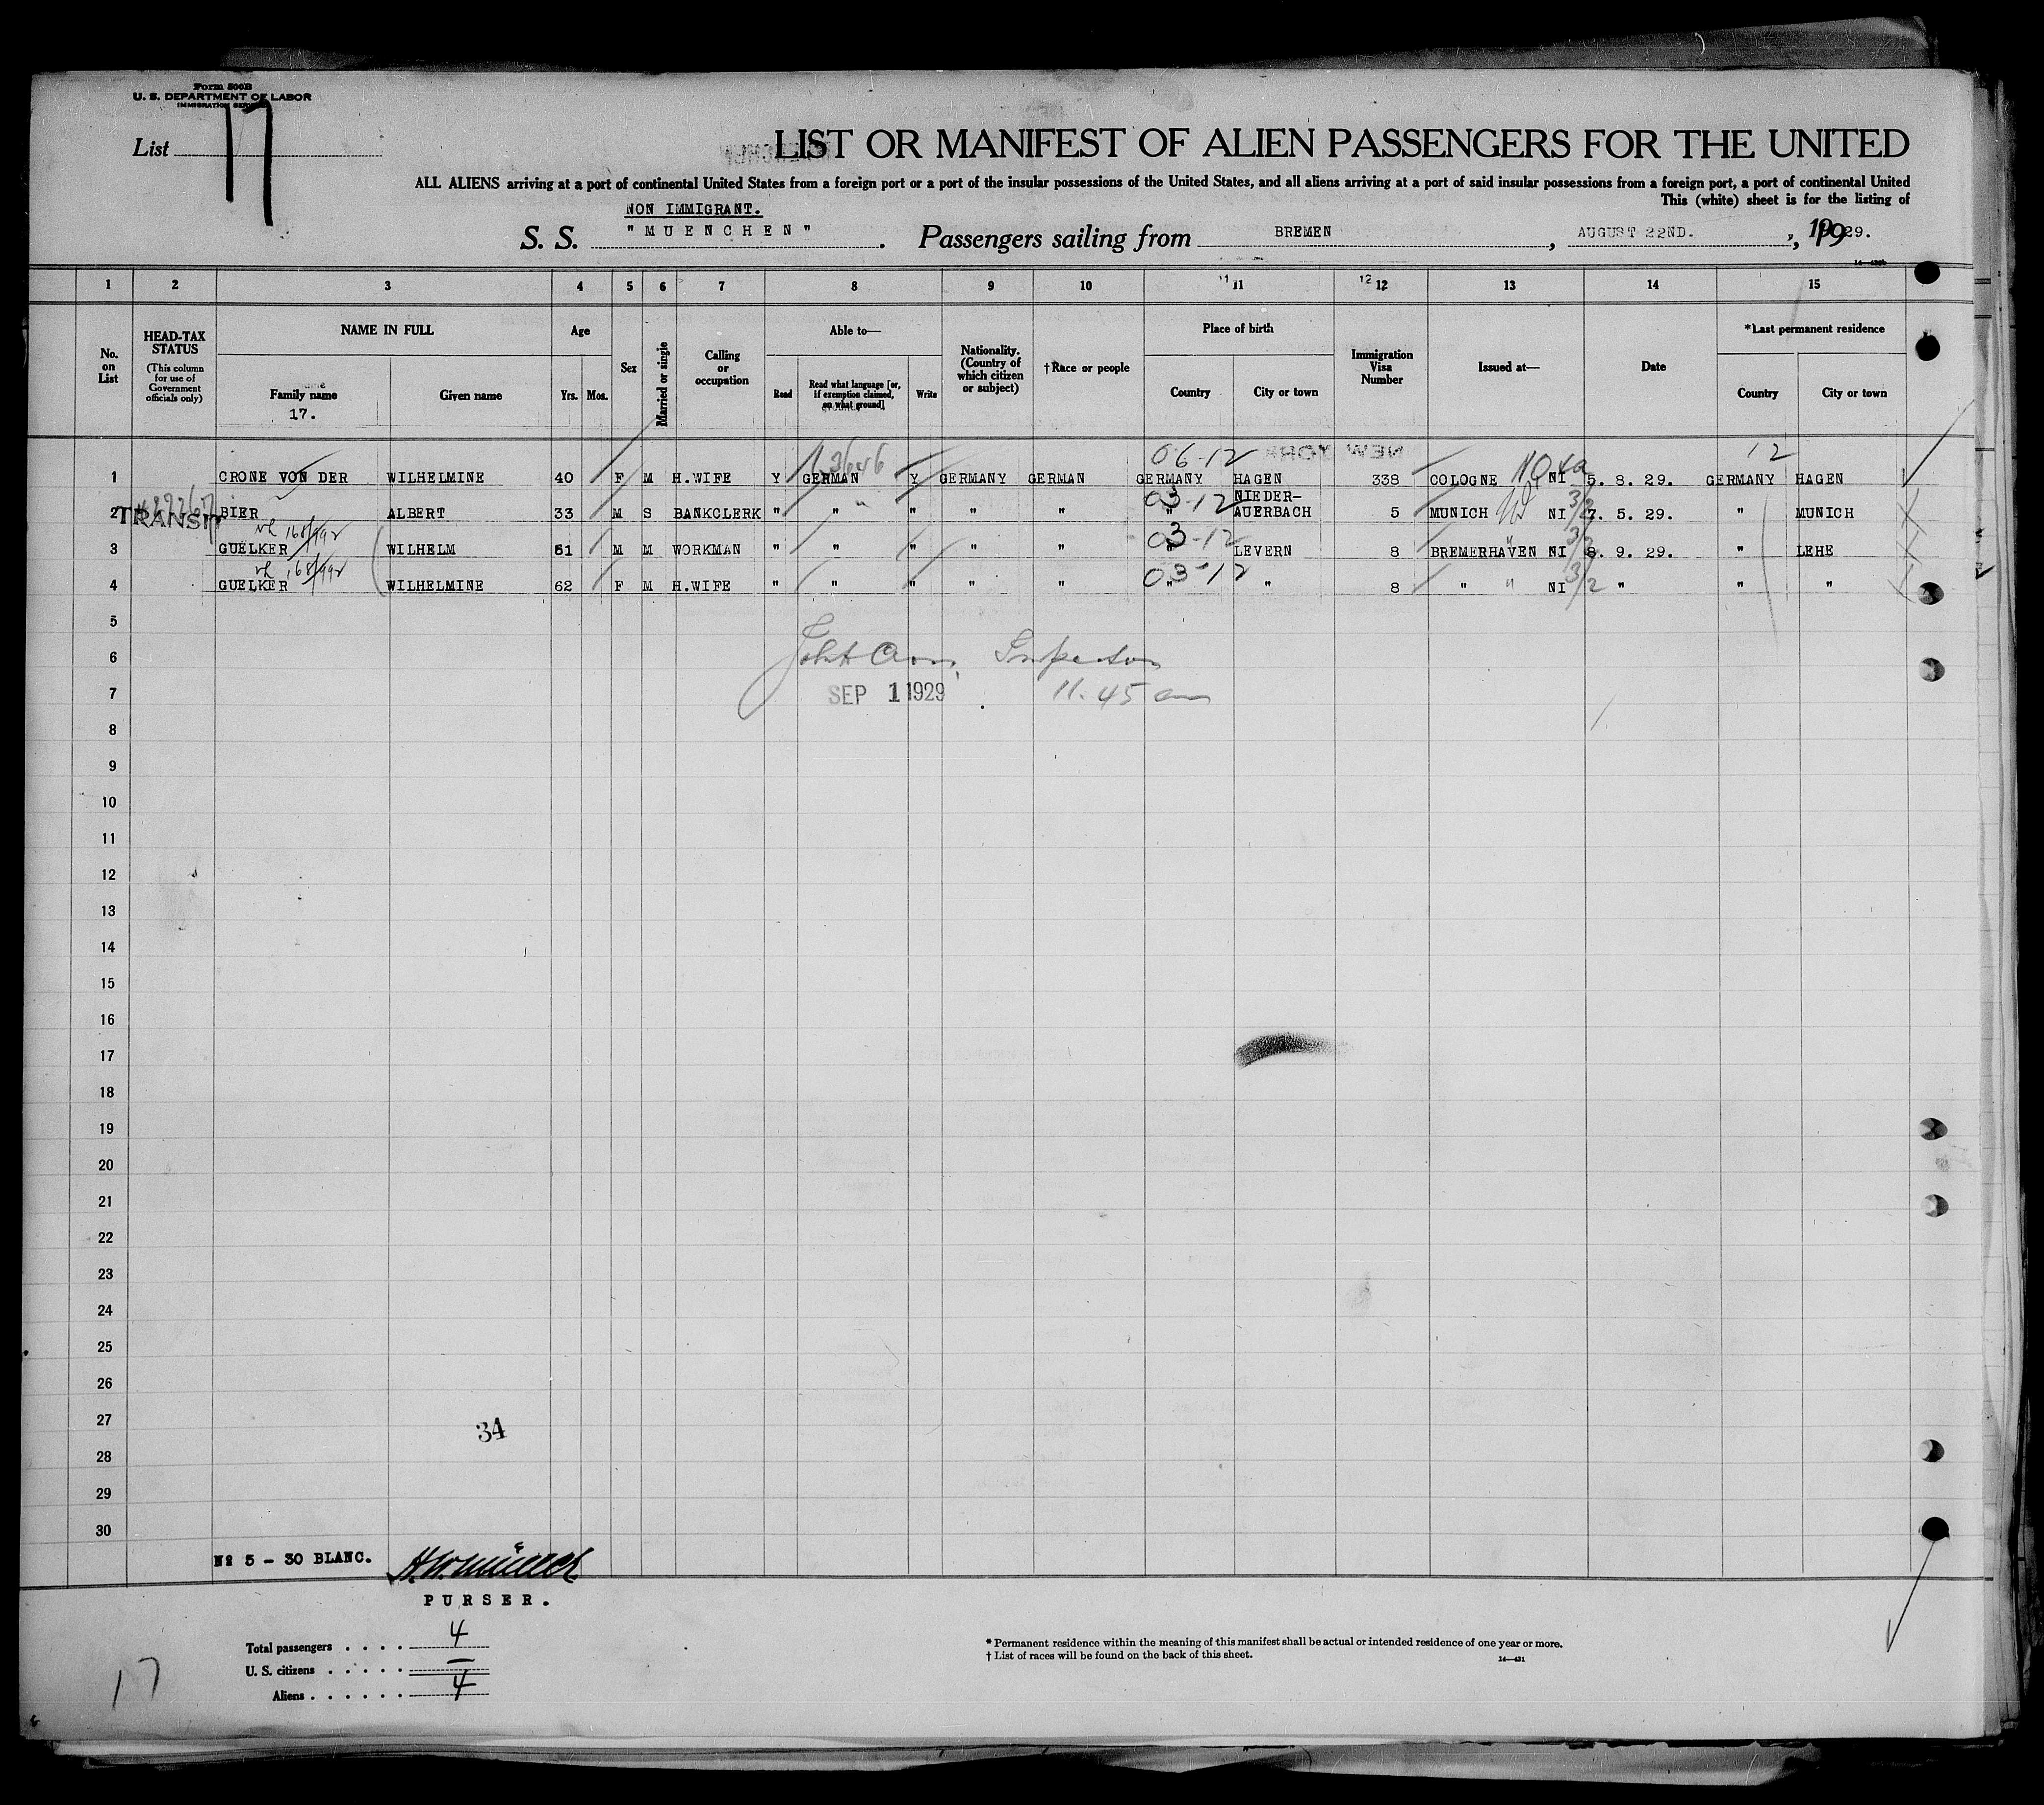 Form 500B
U. S. DEPARTMENT OF LABOR
IMMIGRATION SERVICE
List 17
LIST OR MANIFEST OF ALIEN PASSENGERS FOR THE UNITED
ALL ALIENS arriving at a port of continental United States from a foreign port or a port of the insular possessions of the United States, and all aliens arriving at a port of said insular possessions from a foreign port, a port of continental United
This (white) sheet is for the listing of
NON IMMIGRANT.
S. S. "MUENCHEN". Passengers sailing from BREMEN, AUGUST 22ND., 1929.
1 2 3 4 5 6 7 8 9 10 11 12 13 14 15
No. on List
HEAD-TAX STATUS
(This column for use of Government officials only)
NAME IN FULL
Family name
17.
Given name
Age
Yrs. Mos.
Sex
Married or single
Calling or occupation
Able to—
Read
Read what language [or, if exemption claimed, on what ground]
Write
Nationality. (Country of which citizen or subject)
†Race or people
Place of birth
Country
City or town
Immigration Visa Number
Issued at—
Date
*Last permanent residence
Country
City or town
NEW YORK
06-12 12
1 CRONE VON DER WILHELMINE 40 F M H.WIFE Y GERMAN Y GERMANY GERMAN GERMANY HAGEN 338 COLOGNE NI 5. 8. 29. GERMANY HAGEN
03-12 NIEDER-
2 TRANSIT BIER ALBERT 33 M S BANKCLERK " " " " " " AUERBACH 5 MUNICH NI 3/2 7. 5. 29. " MUNICH
168/992 03-12
3 GUELKER WILHELM 61 M M WORKMAN " " " " " " LEVERN 8 BREMERHAVEN NI 3/2 8. 9. 29. " LEHE
168/992 03-12
4 GUELKER WILHELMINE 62 F M H.WIFE " " " " " " " 8 " " NI 3/2 " " "
5
6
Inspector
7
SEP 1 1929 11.45 am
8
9
10
11
12
13
14
15
16
17
18
19
20
21
22
23
24
25
26
27
34
28
29
30
No 5 - 30 BLANC.
PURSER.
Total passengers . . . . 4
U. S. citizens . . . . . —
Aliens . . . . . . 4
* Permanent residence within the meaning of this manifest shall be actual or intended residence of one year or more.
† List of races will be found on the back of this sheet.
14—431
17